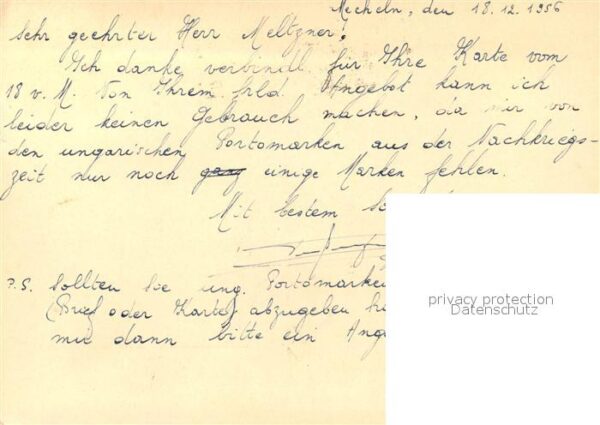 Mecheln, den 18.12.1956
Sehr geehrter Herr Meltzner!
Ich danke verbindl. für Ihre Karte vom
18 v. M. Von Ihrem frld. Angebot kann ich
leider keinen Gebrauch machen, da mir von
den ungarischen Portomarken aus der Nachkriegs-
zeit nur noch ganz einige Marken fehlen.
Mit bestem
P.S. Sollten Sie ung. Portomarken
(Brief oder Karte) abzugeben
mir dann bitte ein Ang
privacy protection
Datenschutz